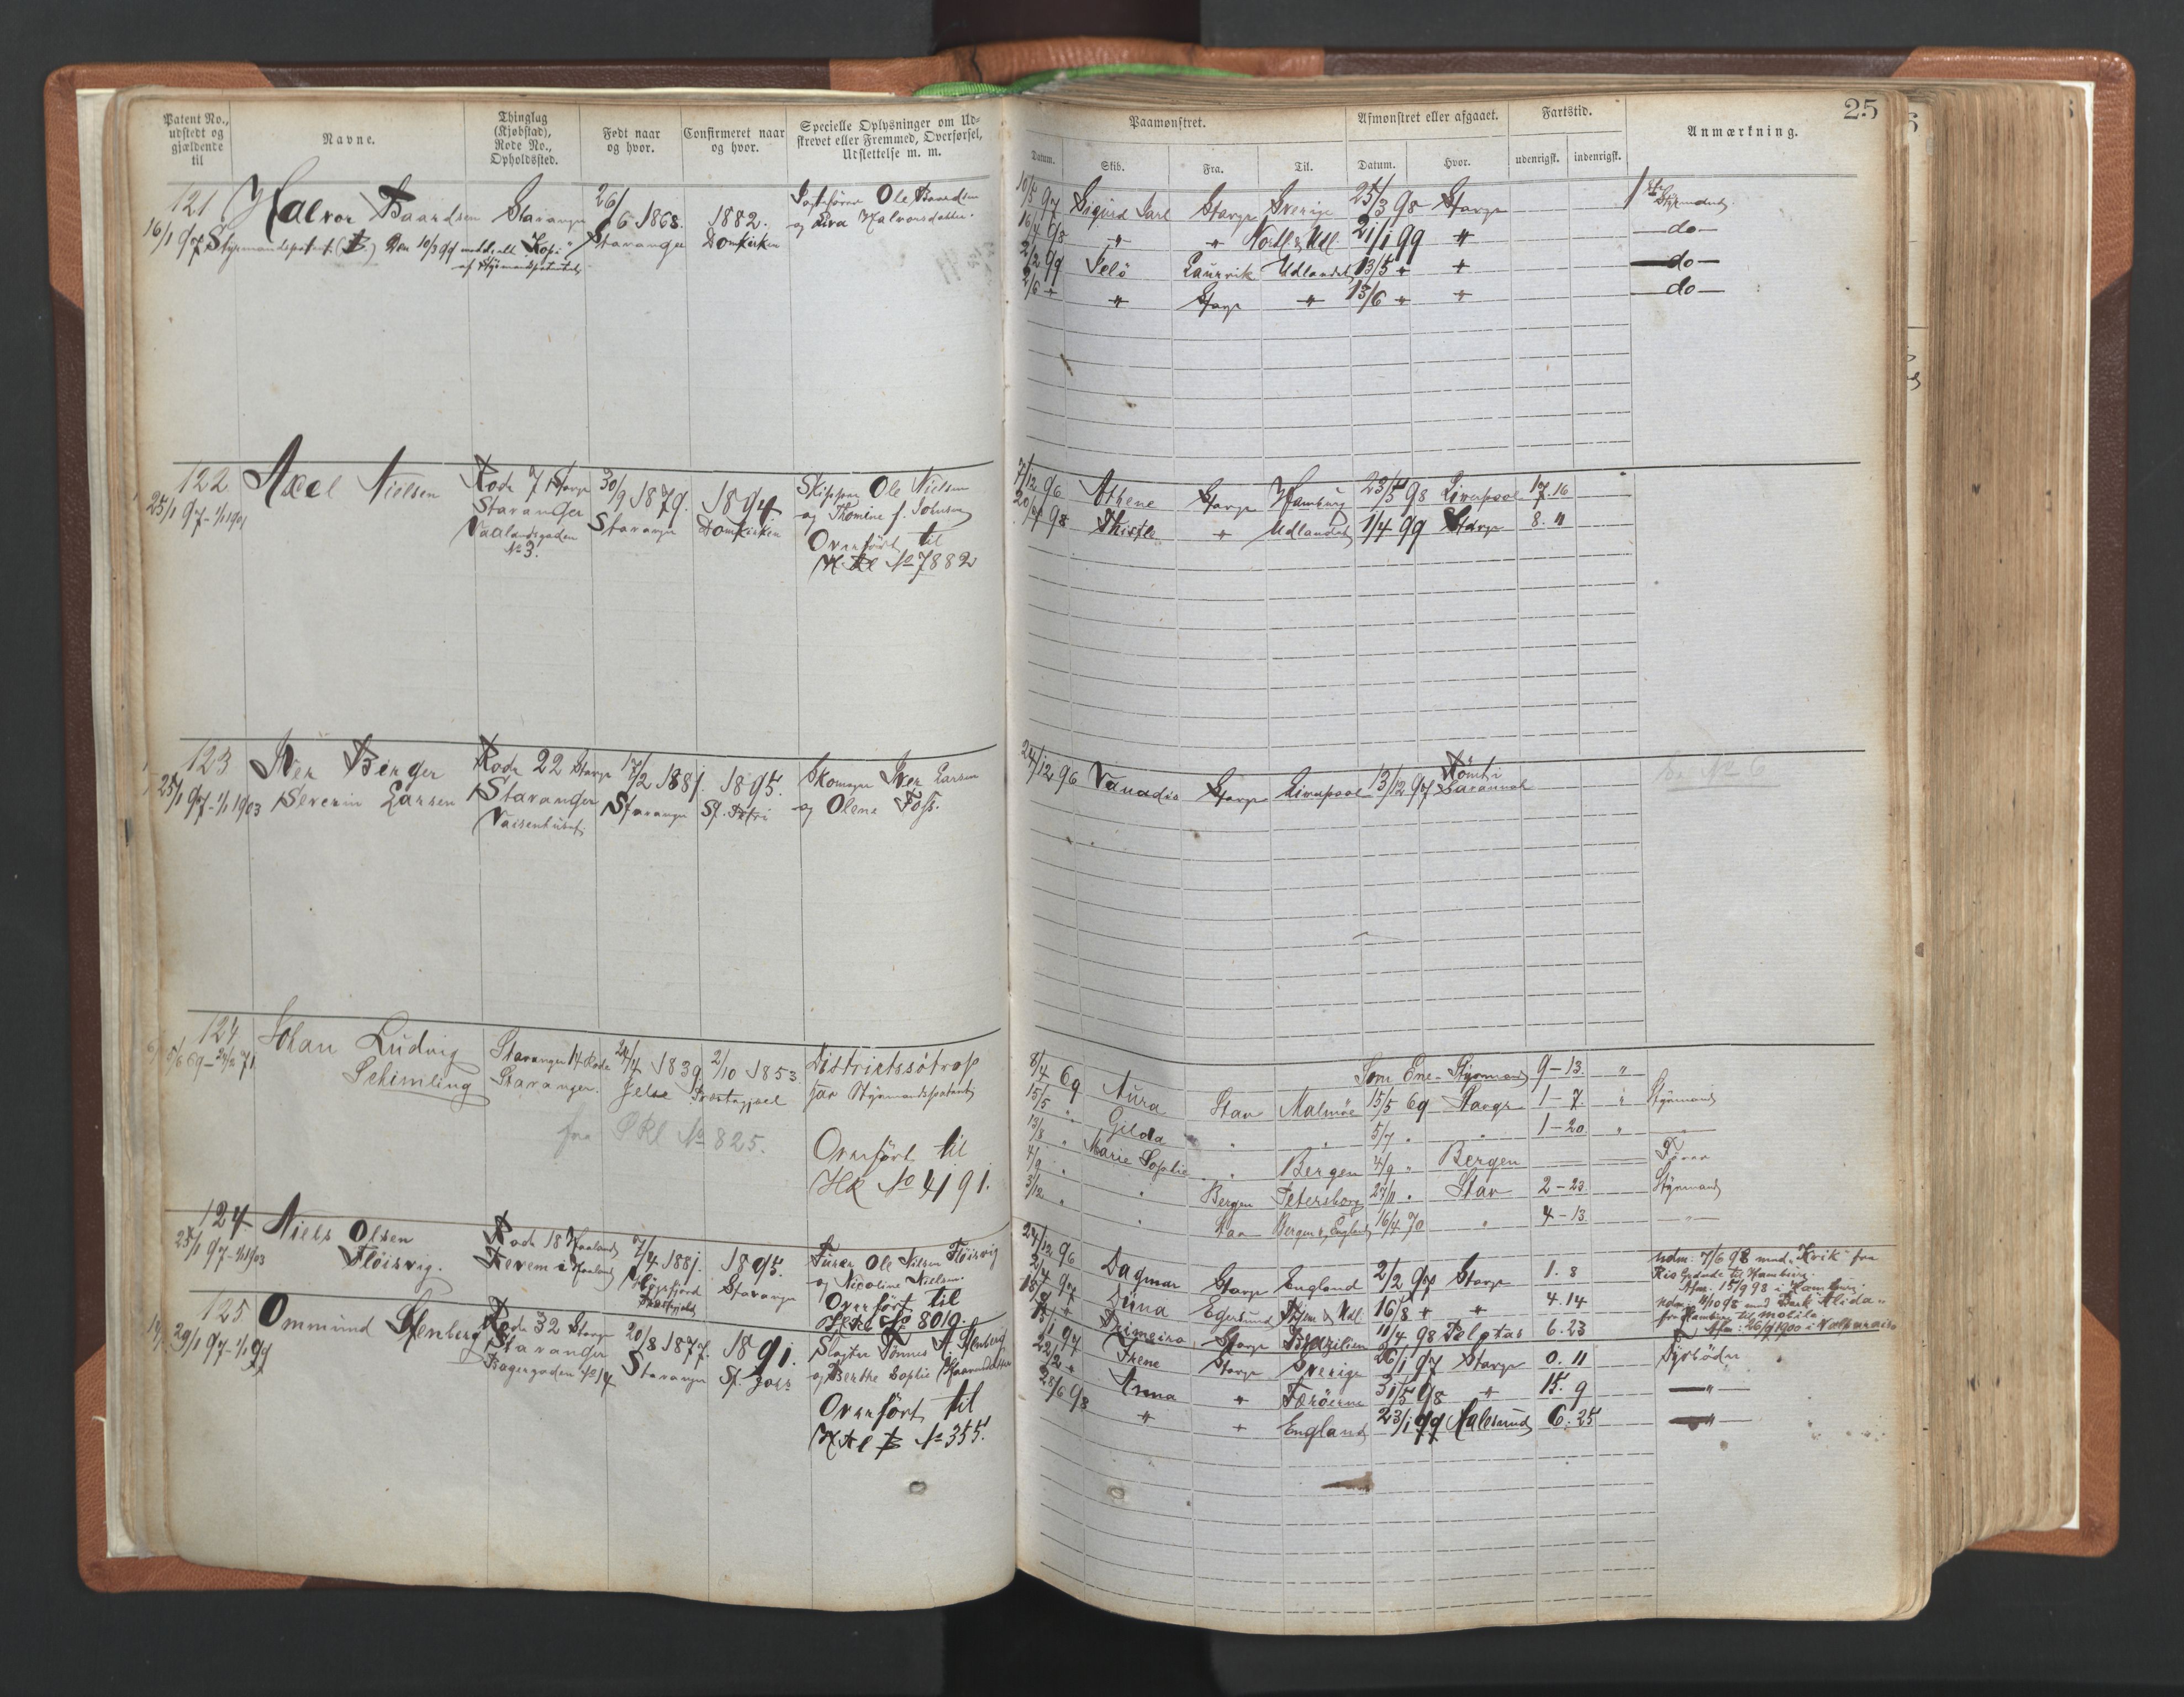 Patent No., udstedt og gjældende til
Navne.
Thinglag (Kjøbstad), Rode No., Opholdssted.
Født naar og hvor.
Confirmeret naar og hvor.
Specielle Oplysninger om Udskrevet eller Fremmed, Overførsel, Udslettelse m. m.
121 Halvor Baardsen Stavanger 26/6 1868. 1882. Ole Baardsen
16/1 97 Styrmandspatent (B.) Den 10/3 99 meddelt "Kopi" Stavanger Domkirken og Halvorsdatter.
af Styrmandspatentet
122 Axel Nielsen Rode 7 Stavgr 30/9 1879. 1894 Skipper Ole Nielsen
25/1 97 - 1/1 1901 Stavanger Stavanger Domkirken og Thomine f.
Vaalandsgaden Overført til
No 3. No 7882
123 Iver Birger Rode 22 Stavgr 17/2 1881. 1895. Skomager Iver Larsen
25/1 97 - 1/1 1903 Severin Larsen Stavanger Stavanger St. Petri og Olene Foss.
Vaisenhuset.
124 Johan Ludvig Stavanger 14 Rode 24/4 1839 2/10 1853
5/6 69 Schimling Stavanger. Jelse Præstegjæl Styrmandspatent
fra No 825. Overført til
No 4191.
124 Niels Olsen Rode 18 Haaland 7/4 1881. 1895. Ole Nielsen Fløisvig
25/1 97 - 1/1 1903 Fløisvig. i Haaland Høgsfjord Stavanger og Nicoline Nielsen.
Overført til
No 8019.
125 Ommund Stenberg Rode 32 Stavgr 20/8 1877. 1891. Slagter Tønnes Stenberg
29/1 97 - 1/1 99 Stavanger Stavanger St. og Berthe Sophie
Bagergaden No 14
Overført til
B No 355.
25
Paamønstret.
Afmønstret eller afgaaet.
Fartstid.
Anmærkning.
Datum. Skib. Fra. Til. Datum. Hvor. udenrigsk. indenrigsk.
10/5 97 Sigurd Jarl Stavgr Sverige 25/3 98 Stavgr 1ste Styrmand
16/4 98 " " 21/1 99 " — do —
2/2 99 Selø Laurvik Udlandet 13/5 " " — do —
2/6 " " Stavgr " 13/6 " " — do —
7/12 96 Athene Stavgr Hamburg 23/5 98 Liverpool 17.16
98 Thistle " Udlandet 1/4 99 Stavgr 8. "
24/12 96 Vanadis Stavgr Liverpool 13/12 97 Rømt i Savannah
No 6
8/4 69 Aura Som Ene-Styrmand 9-13. "
15/5 " Gilda Stav Malmøe 15/5 69 Stavgr 1-7. " Styrmand
13/8 " Marie Sophie " " 5/7 " " 1-20. "
4/9 " " " Bergen 4/9 " Bergen Fører
3/12 " " Bergen Petersborg 27/11 " Stav 2-23 Styrmand
Stav Bergen & England 16/4 70 " 4-13
24/12 96 Dagmar Stavgr England 2/2 97 Stavgr 1.8
2/4 97 Egersund 16/8 " " 4.14
18/9 " Stavgr Brazilien 11/4 98 Pelotas 6.23
Udm. 7/6 98 med "Kvik" fra
Rio Grande til Hamburg
Afm. 15/9 98 i Hamburg
Udm. 11/10 98 med Bark "Alida"
fra Hamburg til Mobile
Afm: 26/9 1900 i Valparaiso
15/1 97 Irene Stavgr Sverige 26/1 97 Stavgr 0. 11 Fyrbøder
22/2 " Anna " Færöerne 31/5 98 " 15. 9 — " —
25/6 98 " " England 23/1 99 Aalesund 6. 25 — " —